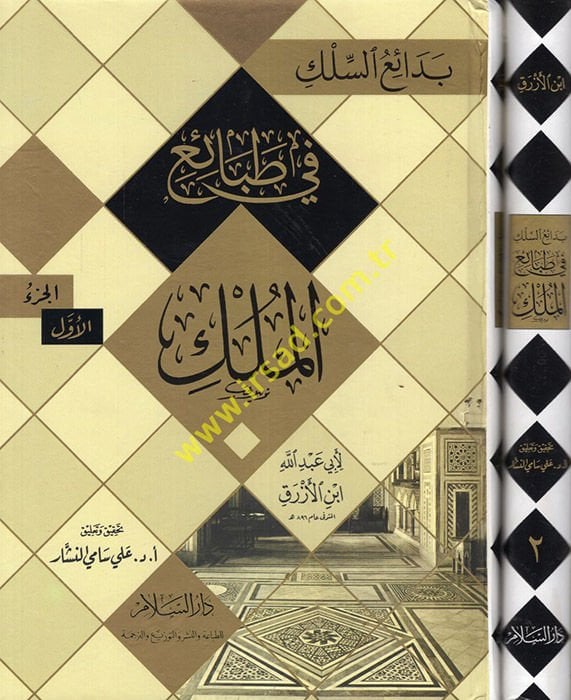 بَدَائِعُ السِّلْكِ
فِي طَبَائِعِ
المُلْكِ
الجُزْءُ
الأَوَّل
لِأَبِي عَبْدِ اللَّهِ
ابْنِ الأَزْرَقِ
المتوفى عام ٨٩٦ هـ
تحقيق وتعليق
أ.د. عَلي سَامي النشَّار
دَارُ السَّلَامِ
للطباعة والنشر والتوزيع والترجمة
www.irsad.com.tr
ابْن الأَزْرَقِ
بَدَائِعُ السِّلْكِ
فِي طَبَائِعِ
المُلْكِ
تحقيق وتعليق
أ.د. عَلي سَامي النشَّار
٢
دَارُ السَّلَامِ